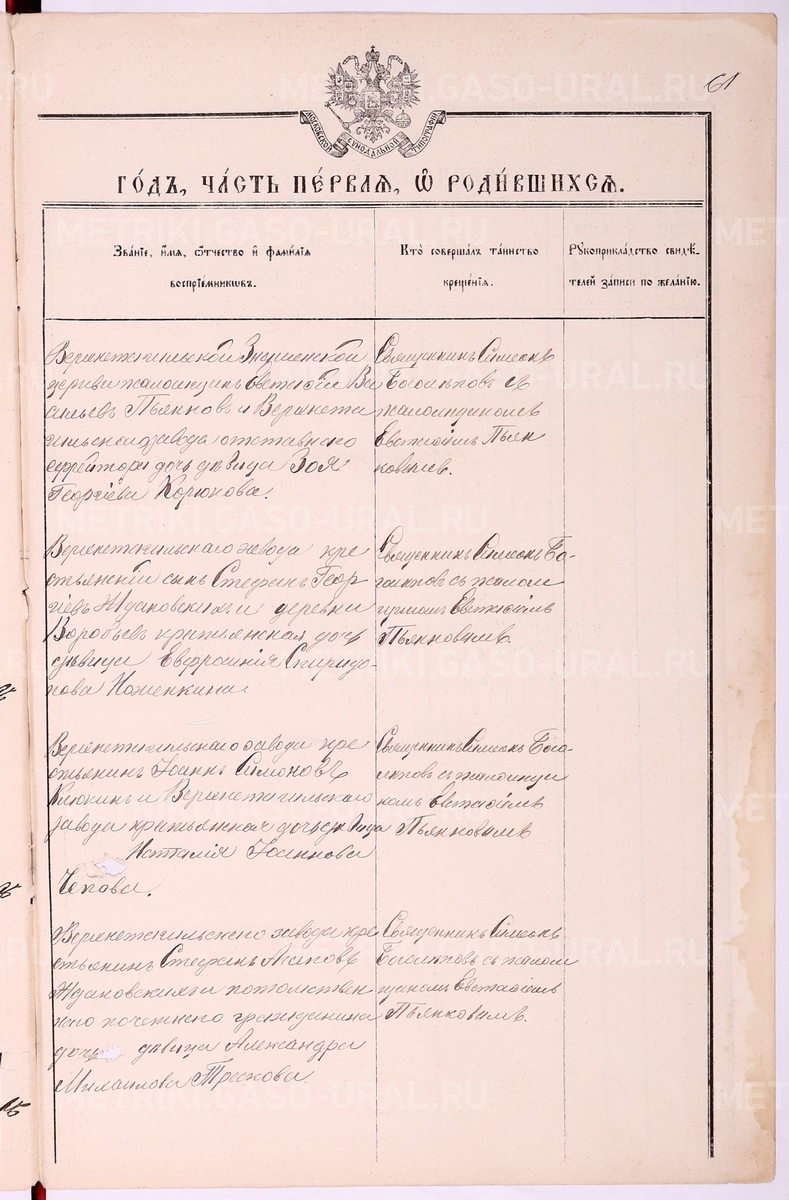 61
МОСКОВСКОЙ СѴНОДАЛЬНОЙ ТИПОГРАФІИ
ГО́ДЪ, ЧА́СТЬ ПЕ́РВАЯ, Ѽ РОДИ́ВШИХСЯ.
Зва́нїе, и́мѧ, ѻ́тчество и҆ фами́лїѧ
воспрїе́мникѡвъ.
Кто̀ соверша́лъ та́инство
креще́нїѧ.
Рꙋкоприкла́дство свидѣ́-
телей за́писи по жела́нїю.
Верхнетагильской Знаменской
церкви псаломщикъ Евѳимій Ва
сильевъ Пьянковъ и Верхнета
гильскаго завода отставного
ефрейтора дочь дѣвица Зоя
Георгіева Корюкова.
Священникъ Симеонъ
Боголѣповъ съ
псаломщикомъ
Евѳиміемъ Пьян
ковымъ.
Верхнетагильскаго завода кре
стьянскій сынъ Стефанъ Геор
гіевъ Ждановскихъ и деревни
Воробьевъ крестьянская дочь
дѣвица Евфросинія Спиридо-
нова
Священникъ Симеонъ Бо-
голѣповъ съ псалом
щикомъ Евѳиміемъ
Пьянковымъ.
Верхнетагильскаго завода кре
стьянинъ Іоаннъ Симоновъ
Клюкинъ и Верхнетагильскаго
завода крестьянская дочь дѣвица
Наталія Іоаннова
Чепова.
Священникъ Симеонъ Бого-
лѣповъ съ псаломщи
комъ Евѳиміемъ
Пьянковымъ
Верхнетагильскаго завода кре
стьянинъ Стефанъ Агаповъ
Ждановскихъ и потомствен
наго почетнаго гражданина
дочь дѣвица Александра
Михаилова Треухова.
Священникъ Симеонъ
Боголѣповъ съ псалом
щикомъ Евѳиміемъ
Пьянковымъ.
METRIKI.GASO-URAL.RU